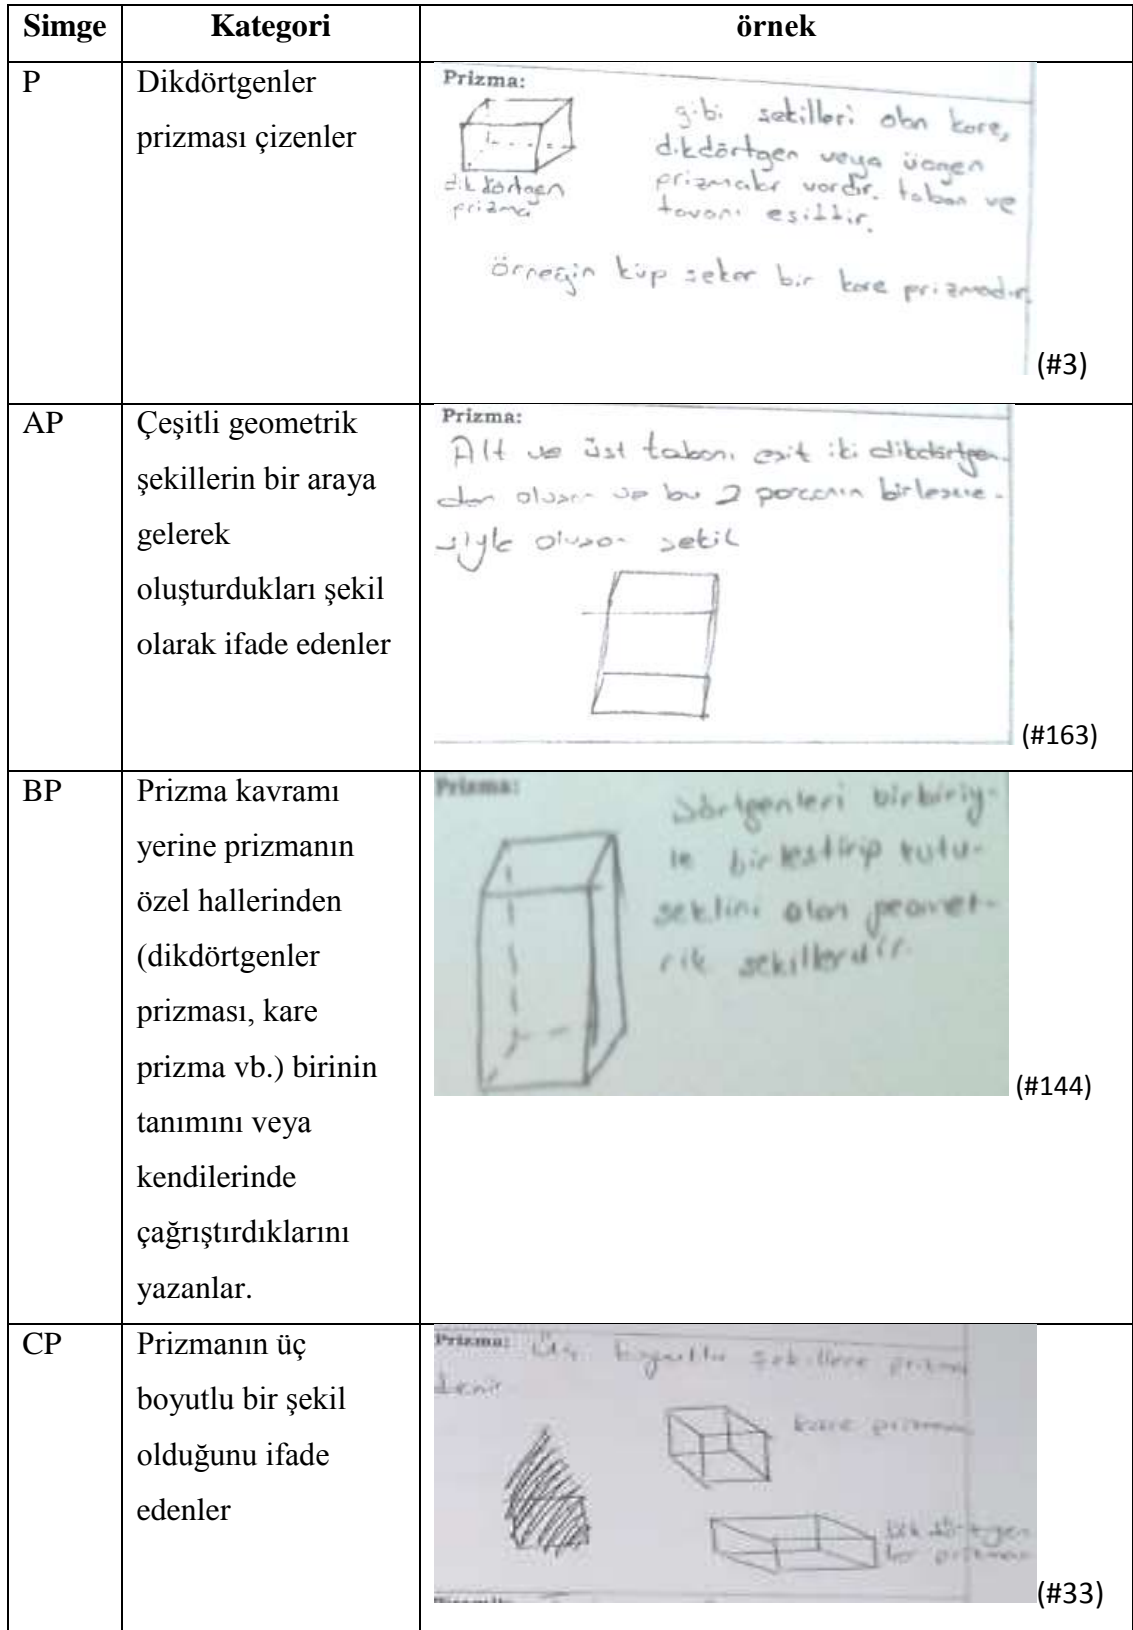 Simge Kategori örnek
P Dikdörtgenler
prizması çizenler
Prizma:
gibi şekilleri olan kare,
dikdörtgen veya üçgen
prizmalar vardır. taban ve
tavanı eşittir.
dikdörtgen
prizma
Örneğin küp şeker bir kare prizmadır.
(#3)
AP Çeşitli geometrik
şekillerin bir araya
gelerek
oluşturdukları şekil
olarak ifade edenler
Prizma:
Alt ve üst tabanı eşit iki dikdörtgen-
den oluşan ve bu 2 parçanın birleşme-
siyle oluşan şekil
(#163)
BP Prizma kavramı
yerine prizmanın
özel hallerinden
(dikdörtgenler
prizması, kare
prizma vb.) birinin
tanımını veya
kendilerinde
çağrıştırdıklarını
yazanlar.
Prizma:
Dörtgenleri birbiriy-
le birleştirip kutu
şeklini alan geomet-
rik şekillerdir.
(#144)
CP Prizmanın üç
boyutlu bir şekil
olduğunu ifade
edenler
Prizma: Üç boyutlu şekillere prizma
denir.
kare prizma
dikdörtgen
(#33)